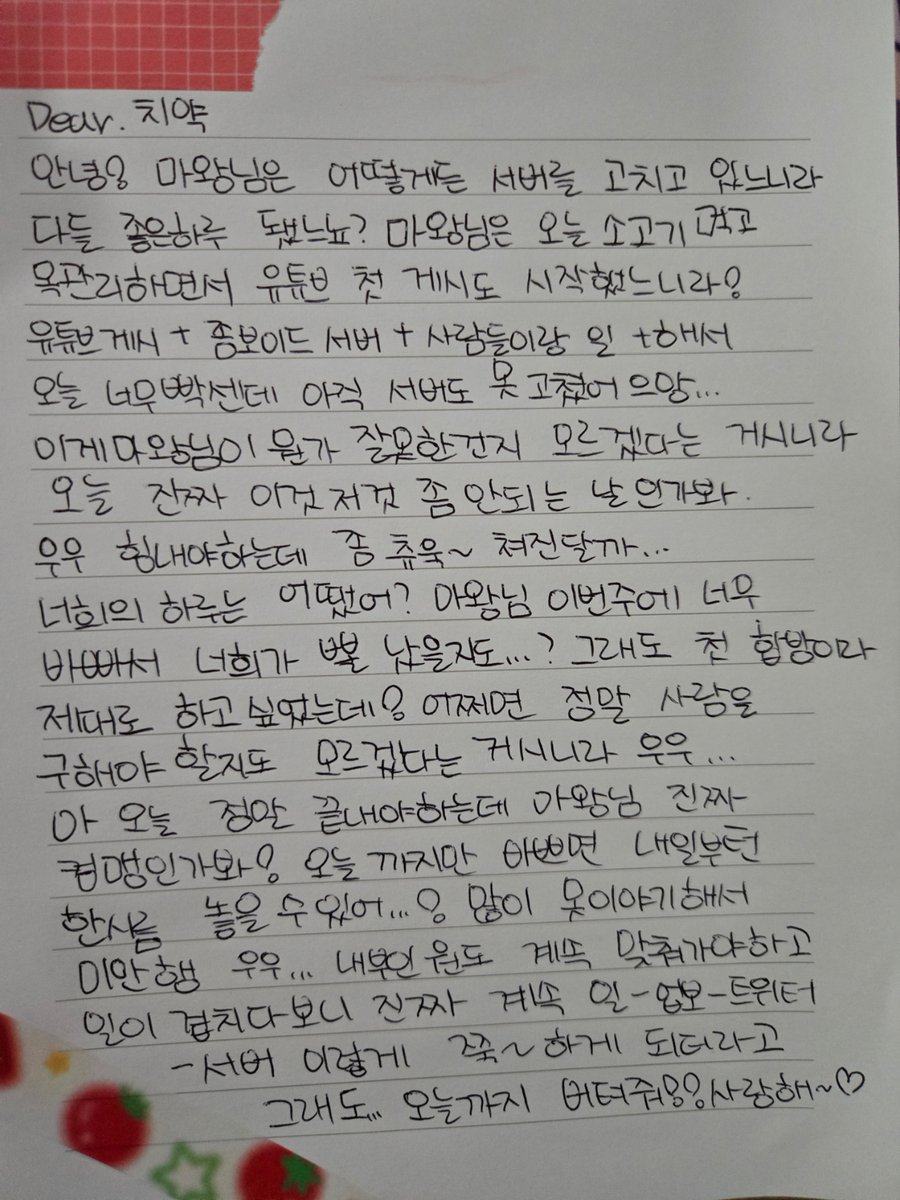 Dear. 치약
안녕? 마왕님은 어떻게든 서버를 고치고 있느니라
다들 좋은하루 됐느뇨? 마왕님은 오늘 소고기 먹고
목관리하면서 유튜브 첫 게시도 시작했느니라?
유튜브게시 + 좀보이드 서버 + 사람들이랑 일 +해서
오늘 너무빡센데 아직 서버도 못고쳤어으앙...
이게마왕님이 뭔가 잘못한건지 모르겠다는 게시니라
오늘 진짜 이것저것 좀안되는 날인가봐.
우우 힘내야하는데 좀 츄욱~ 쳐진달까...
너희의 하루는 어땠어? 마왕님 이번주에 너무
바빠서 너희가 뿔 났을지도...? 그래도 첫 합방이라
제대로 하고싶었는데? 어쩌면 정말 사람을
구해야 할지도 모르겠다는 게시니라 우우...
아 오늘 정말 끝내야하는데 마왕님 진짜
컴맹인가봐? 오늘까지만 바쁘면 내일부턴
한시름 놓을수있어...? 많이 못이야기해서
미안행 우우... 내부인원도 계속 맞춰가야하고
일이 겹치다보니 진짜 계속 일-업보-트위터
-서버 이렇게 쭉~하게 되더라고
그래도... 오늘까지 버텨줘??사랑해~♡